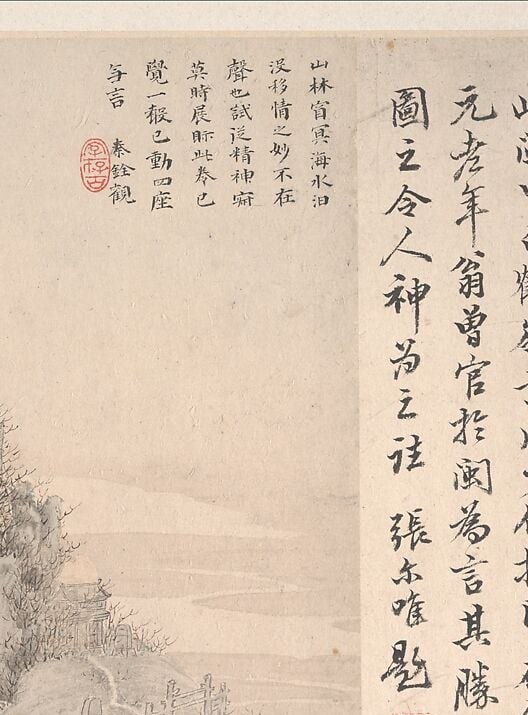 元老年翁曾官於閩為言其勝
圖之令人神為之往 張尔唯題
山林窅冥海水汩
没移情之妙不在
聲也試從精神寂
莫時展眎此卷已
覺一殸已動四座
无言 秦銓觀